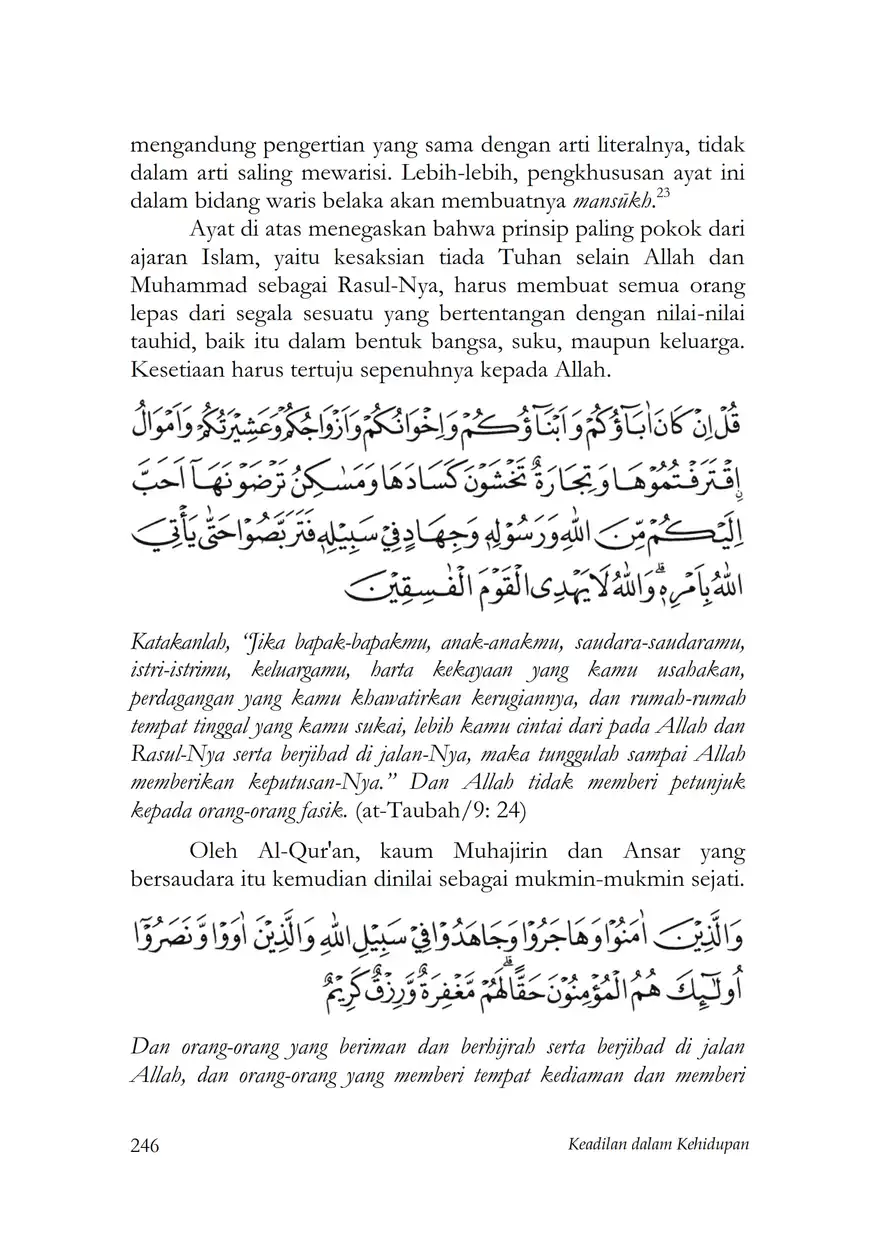 mengandung pengertian yang sama dengan arti literalnya, tidak
dalam arti saling mewarisi. Lebih-lebih, pengkhususan ayat ini
dalam bidang waris belaka akan membuatnya mansūkh.23
Ayat di atas menegaskan bahwa prinsip paling pokok dari
ajaran Islam, yaitu kesaksian tiada Tuhan selain Allah dan
Muhammad sebagai Rasul-Nya, harus membuat semua orang
lepas dari segala sesuatu yang bertentangan dengan nilai-nilai
tauhid, baik itu dalam bentuk bangsa, suku, maupun keluarga.
Kesetiaan harus tertuju sepenuhnya kepada Allah.
قُلْ اِنْ كَانَ اٰبَاۤؤُكُمْ وَاَبْنَاۤؤُكُمْ وَاِخْوَانُكُمْ وَاَزْوَاجُكُمْ وَعَشِيْرَتُكُمْ وَاَمْوَالُ
ۨاقْتَرَفْتُمُوْهَا وَتِجَارَةٌ تَخْشَوْنَ كَسَادَهَا وَمَسٰكِنُ تَرْضَوْنَهَآ اَحَبَّ
اِلَيْكُمْ مِّنَ اللّٰهِ وَرَسُوْلِهٖ وَجِهَادٍ فِيْ سَبِيْلِهٖ فَتَرَبَّصُوْا حَتّٰى يَأْتِيَ
اللّٰهُ بِاَمْرِهٖۗ وَاللّٰهُ لَا يَهْدِى الْقَوْمَ الْفٰسِقِيْنَ
Katakanlah, “Jika bapak-bapakmu, anak-anakmu, saudara-saudaramu,
istri-istrimu, keluargamu, harta kekayaan yang kamu usahakan,
perdagangan yang kamu khawatirkan kerugiannya, dan rumah-rumah
tempat tinggal yang kamu sukai, lebih kamu cintai dari pada Allah dan
Rasul-Nya serta berjihad di jalan-Nya, maka tunggulah sampai Allah
memberikan keputusan-Nya.” Dan Allah tidak memberi petunjuk
kepada orang-orang fasik. (at-Taubah/9: 24)
Oleh Al-Qur'an, kaum Muhajirin dan Ansar yang
bersaudara itu kemudian dinilai sebagai mukmin-mukmin sejati.
وَالَّذِيْنَ اٰمَنُوْا وَهَاجَرُوْا وَجَاهَدُوْا فِيْ سَبِيْلِ اللّٰهِ وَالَّذِيْنَ اٰوَوْا وَّنَصَرُوْٓا
اُولٰۤىِٕكَ هُمُ الْمُؤْمِنُوْنَ حَقًّاۗ لَهُمْ مَّغْفِرَةٌ وَّرِزْقٌ كَرِيْمٌ
Dan orang-orang yang beriman dan berhijrah serta berjihad di jalan
Allah, dan orang-orang yang memberi tempat kediaman dan memberi
246 Keadilan dalam Kehidupan